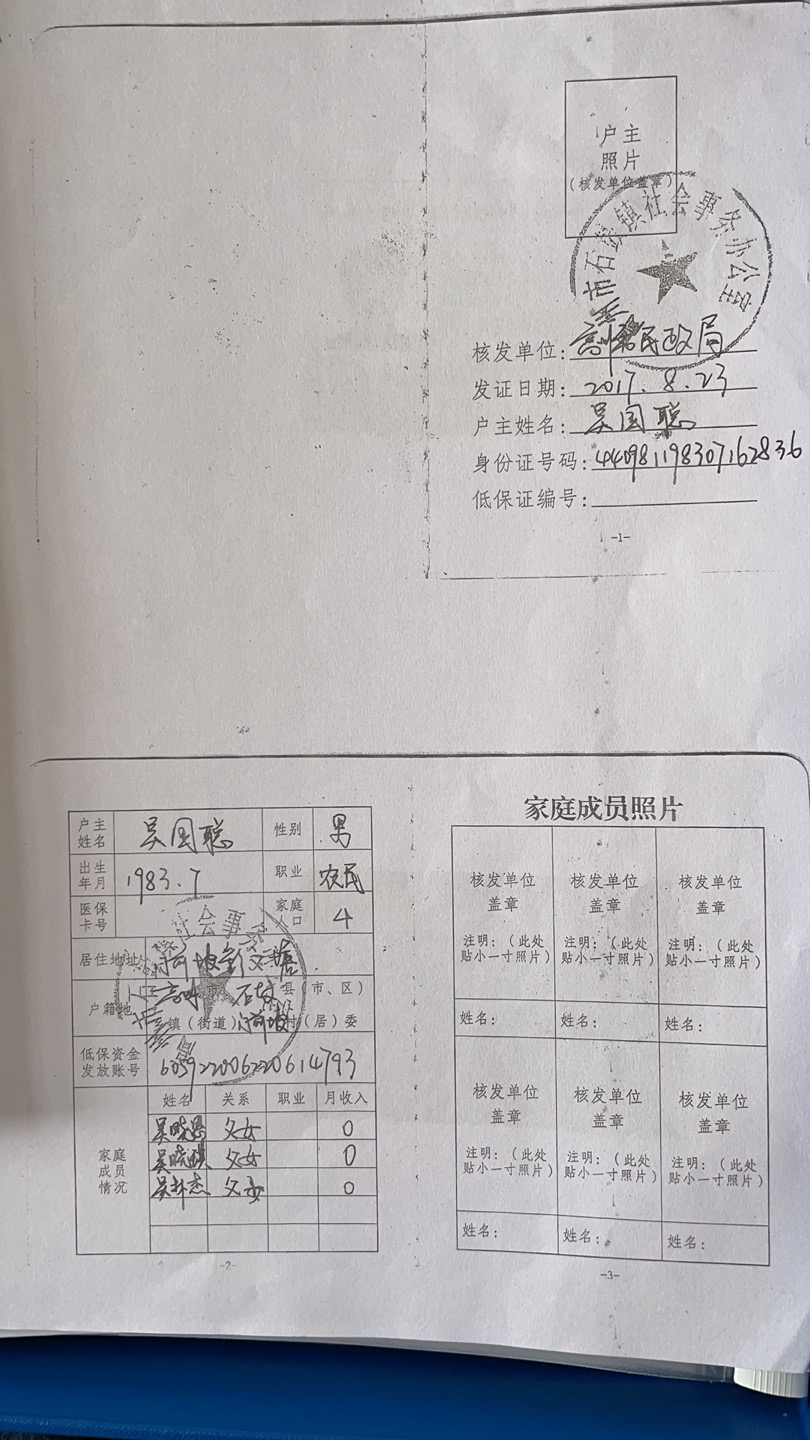 户主
照片
(核发单位盖章)
市石鼓镇社会事务办公室
核发单位:民政局
发证日期:2017.8.23
户主姓名:吴国聪
身份证号码:440981198307162836
低保证编号:
-1-
户主姓名 吴国聪 性别 男
出生年月 1983.7 职业 农民
医保卡号 家庭人口 4
居住地址
户籍地 县(市、区)
镇(街道) 村(居)委
低保资金发放账号 605922006220614793
家庭成员情况
姓名 关系 职业 月收入
吴 父女 0
吴 父女 0
吴 杰 父 0
-2-
家庭成员照片
核发单位 核发单位 核发单位
盖章 盖章 盖章
注明:(此处 注明:(此处 注明:(此处
贴小一寸照片) 贴小一寸照片) 贴小一寸照片)
姓名: 姓名: 姓名:
核发单位 核发单位 核发单位
盖章 盖章 盖章
注明:(此处 注明:(此处 注明:(此处
贴小一寸照片) 贴小一寸照片) 贴小一寸照片)
姓名: 姓名: 姓名:
-3-